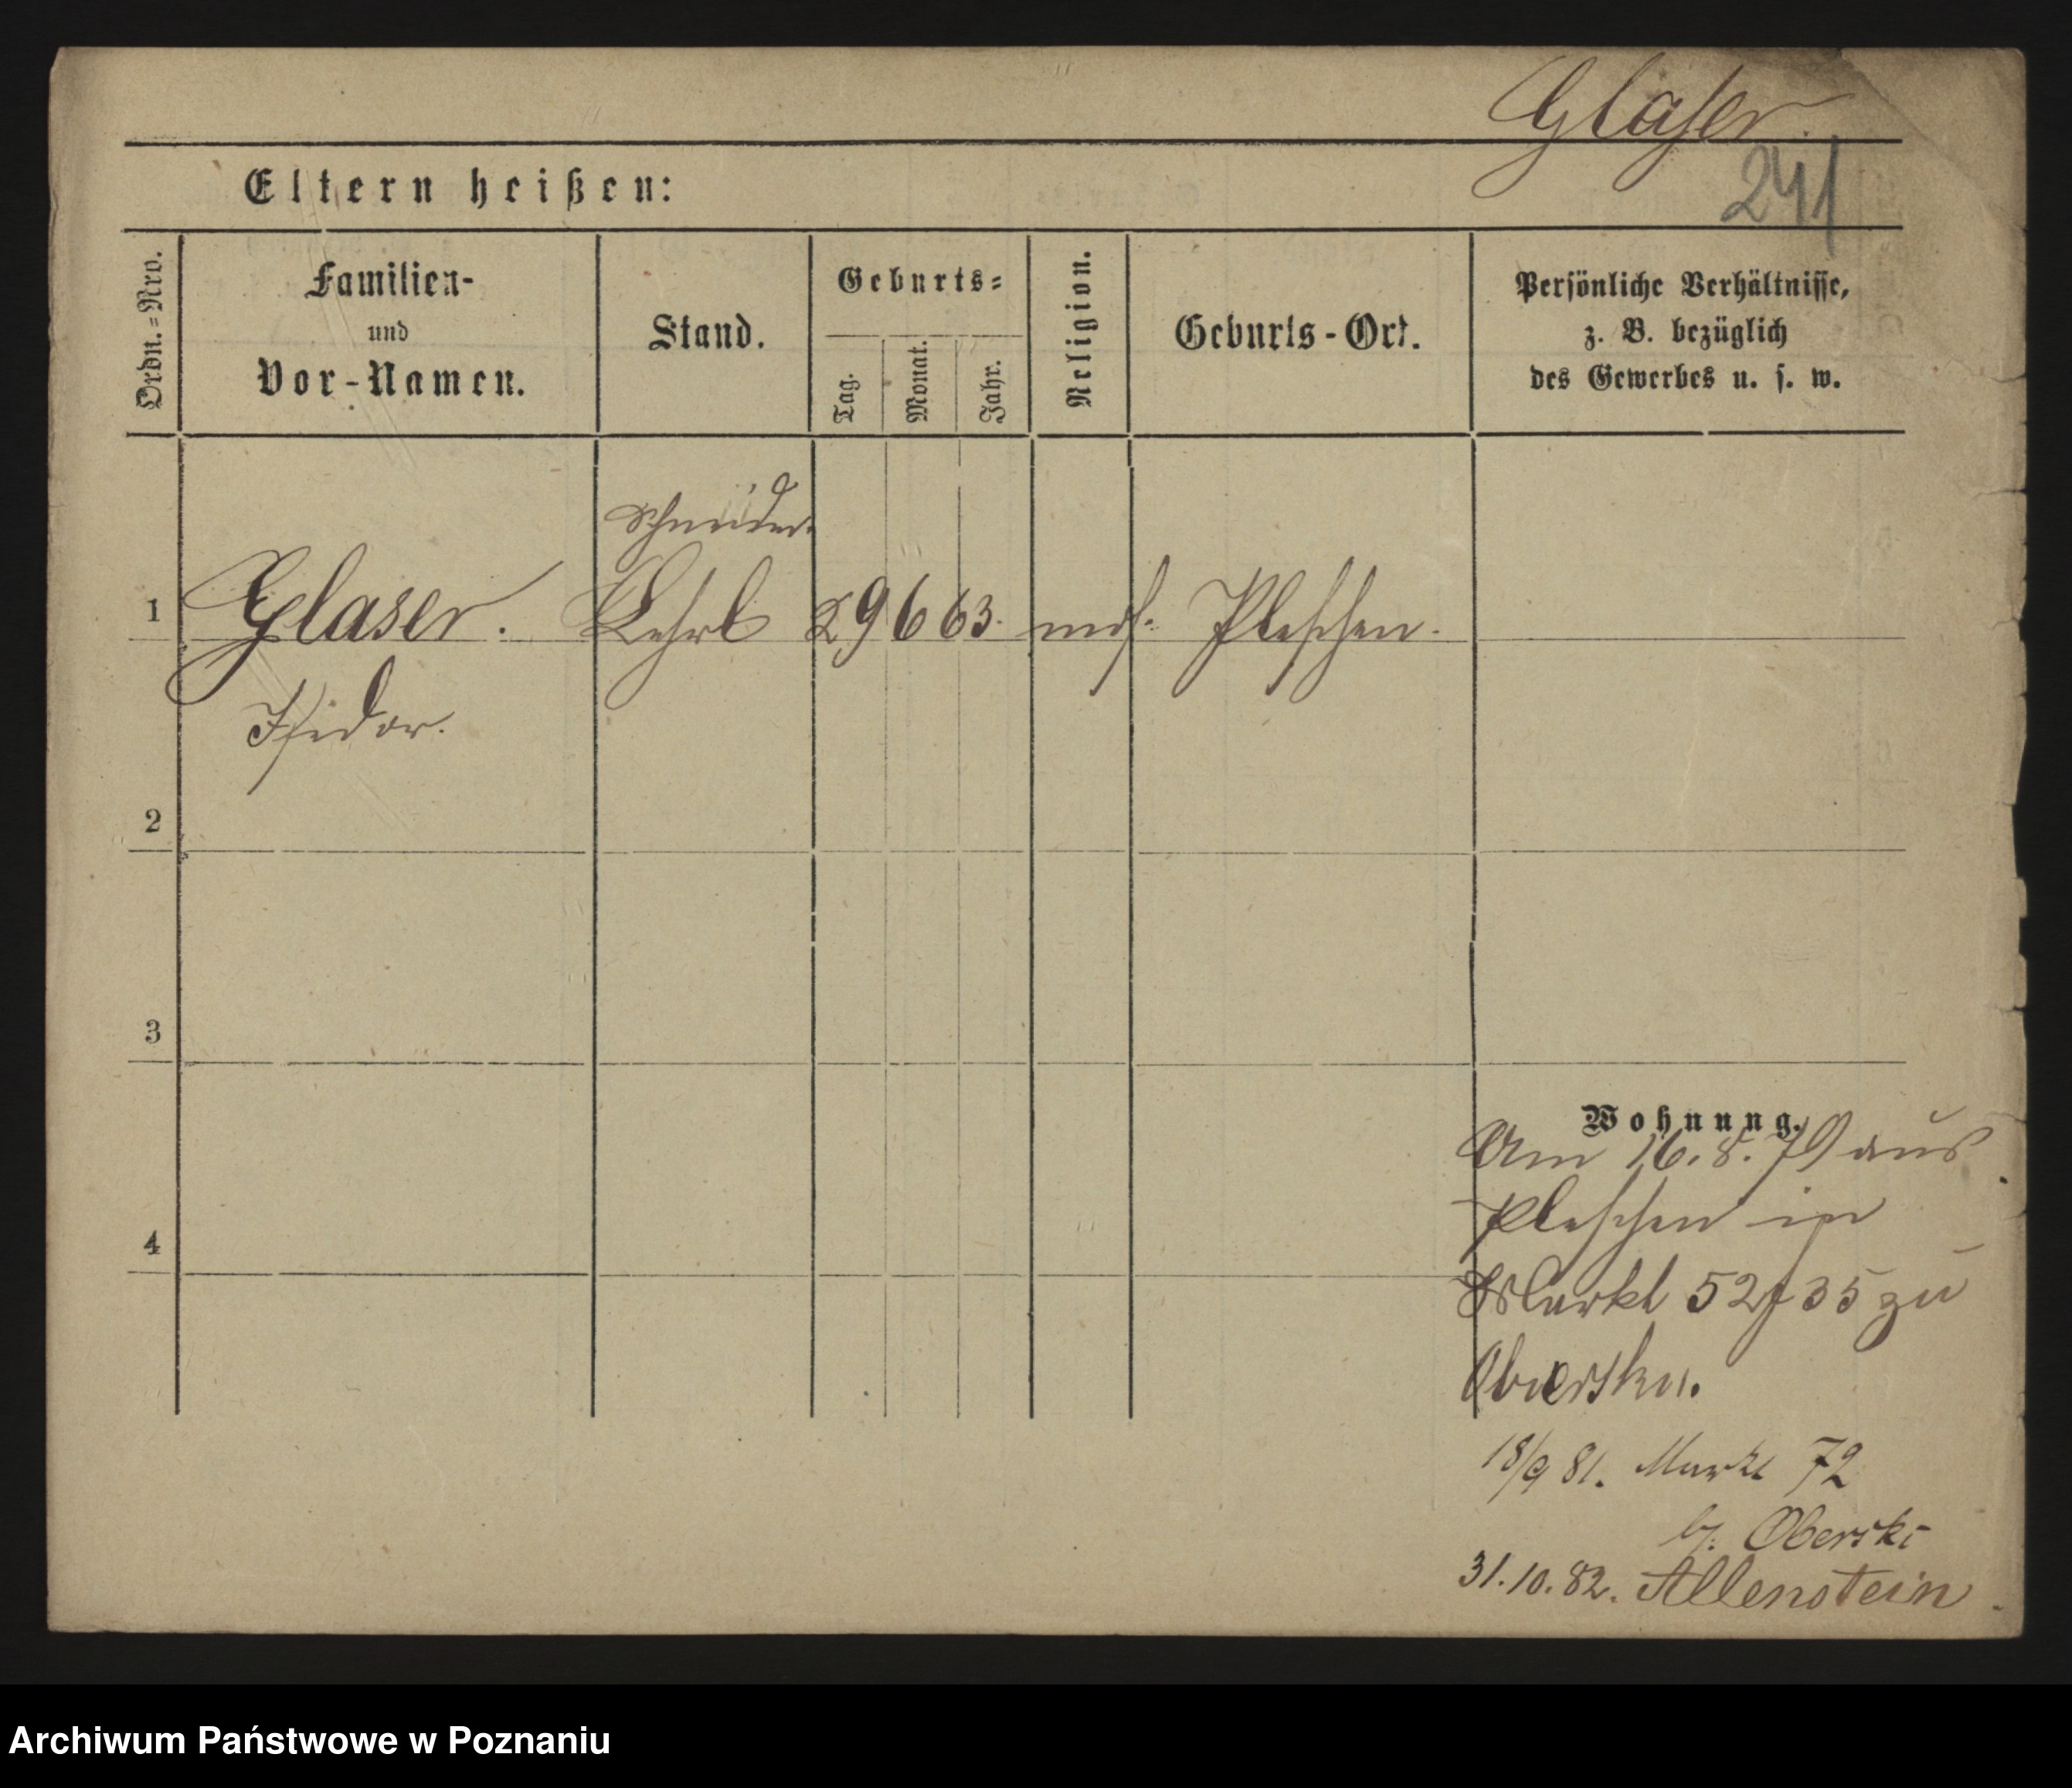 Glaser.
241
Eltern heißen:
Ordn.=Nro.
Familien-
und
Vor-Namen.
Stand.
Geburts=
Tag.
Monat.
Jahr.
Religion.
Geburts-Ort.
Persönliche Verhältnisse,
z. B. bezüglich
des Gewerbes u. s. w.
Schneider
1 Glaser. Lehrl 29 6 63. mos. Pleschen.
Isidor.
2
3
4
Wohnung.
Am 16. 8. 79 aus
Pleschen in
Markt 52/35 zu
18/9 81. Markt 72
b. Oberski
31.10.82. Allenstein
Archiwum Państwowe w Poznaniu